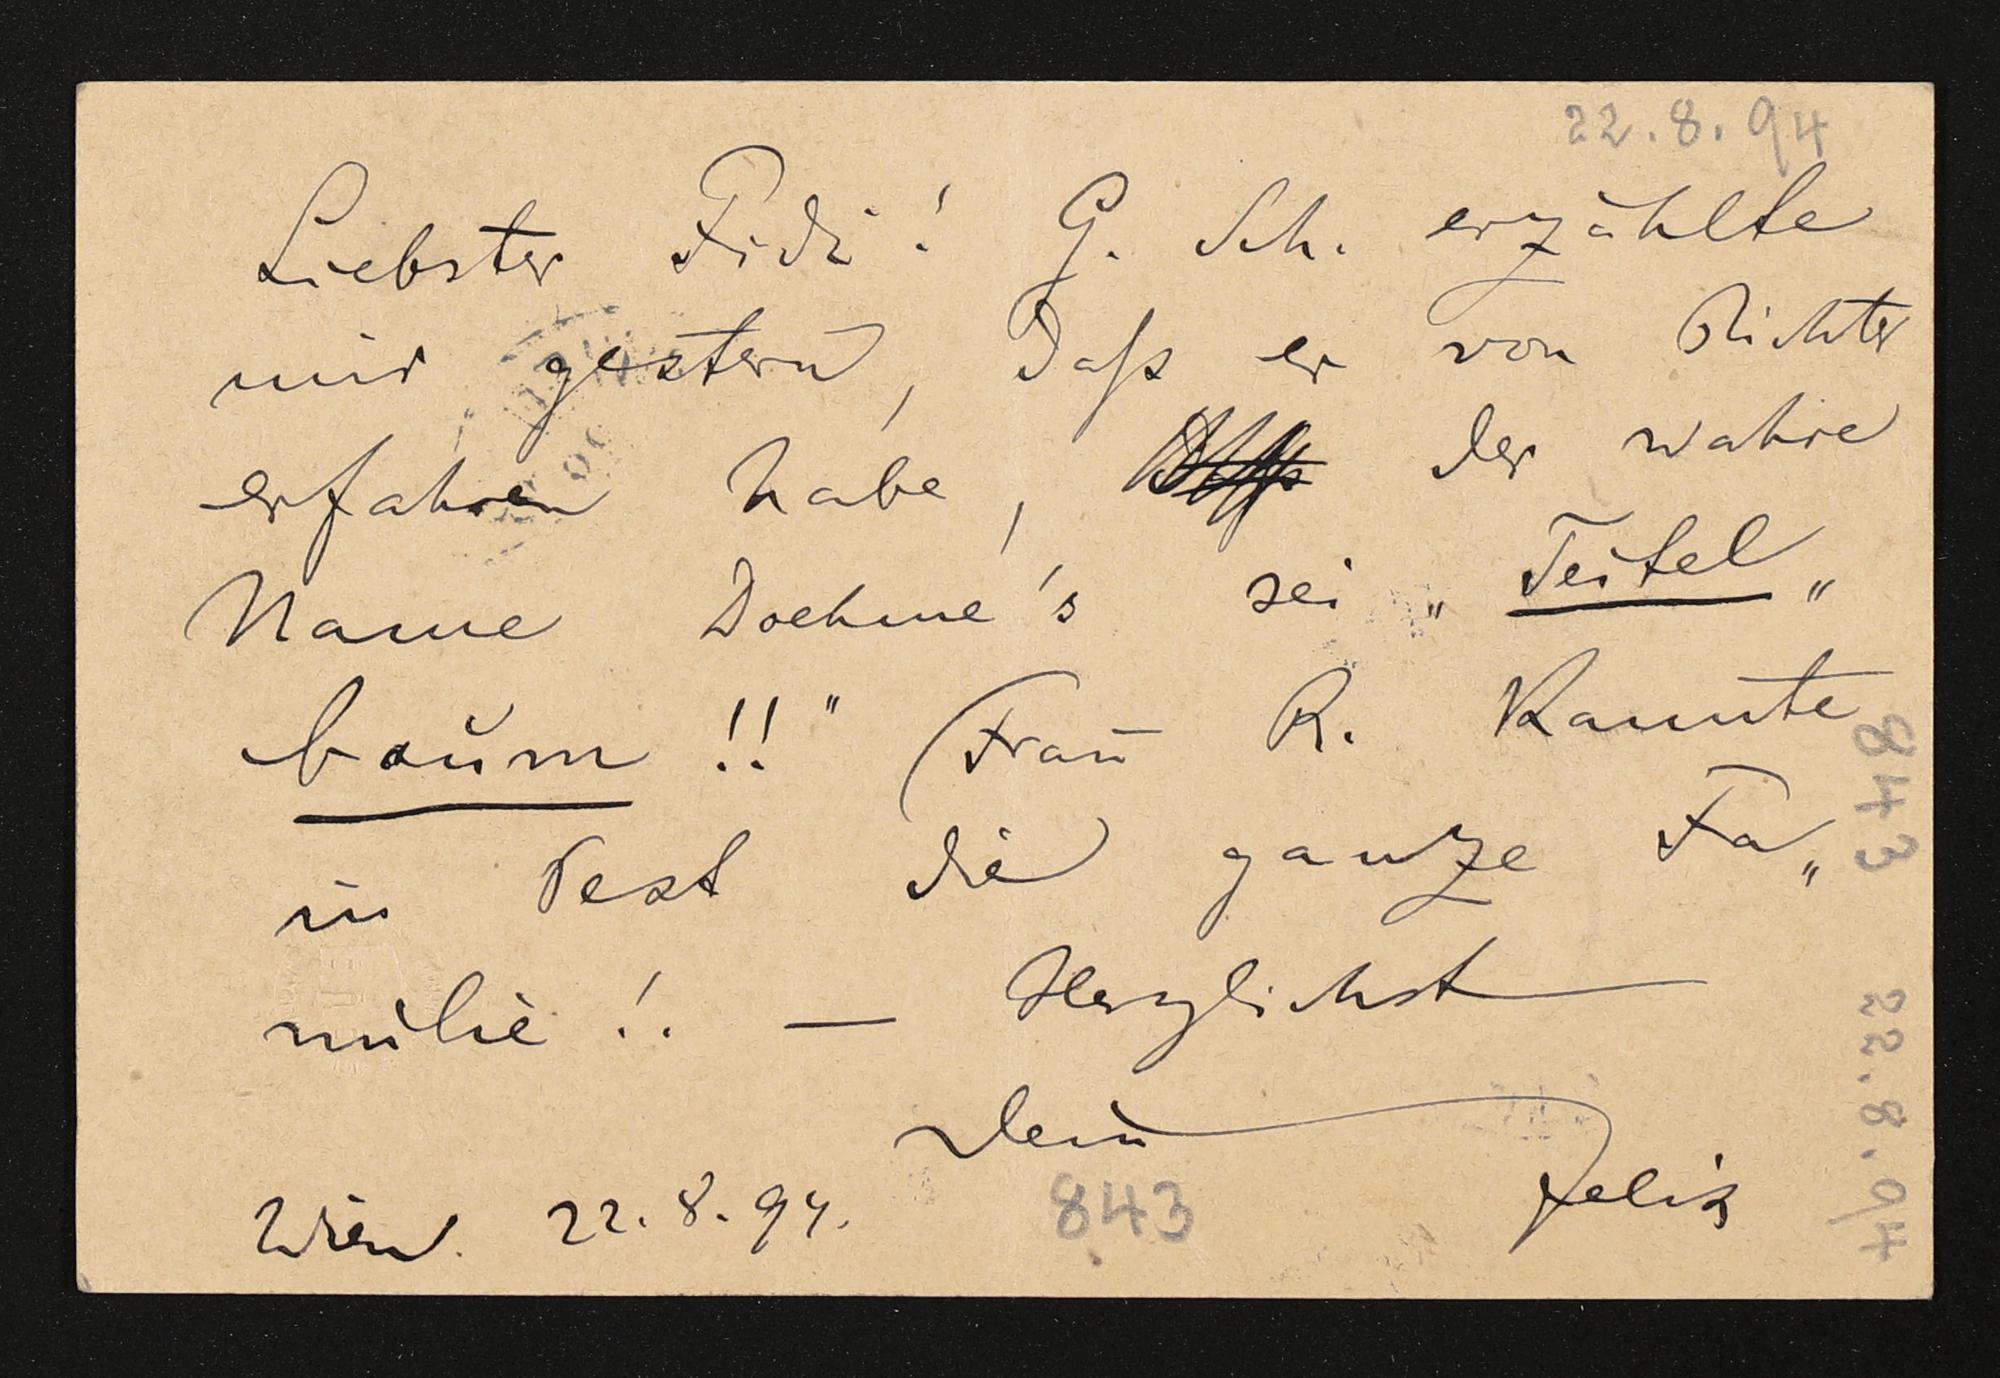 22.8.94
Liebster Fidi! G. Sch. erzählte
mir gestern, daſs er von Richter
erfahren habe, der wahre
Name Doehme's sei „Teitel„
baum!!" (Frau R. kannte
in Pest die ganze Fa„
milie!! — Herzlichst
Dein
Felix
Wien 22.8.94.
843
843 22.8.94